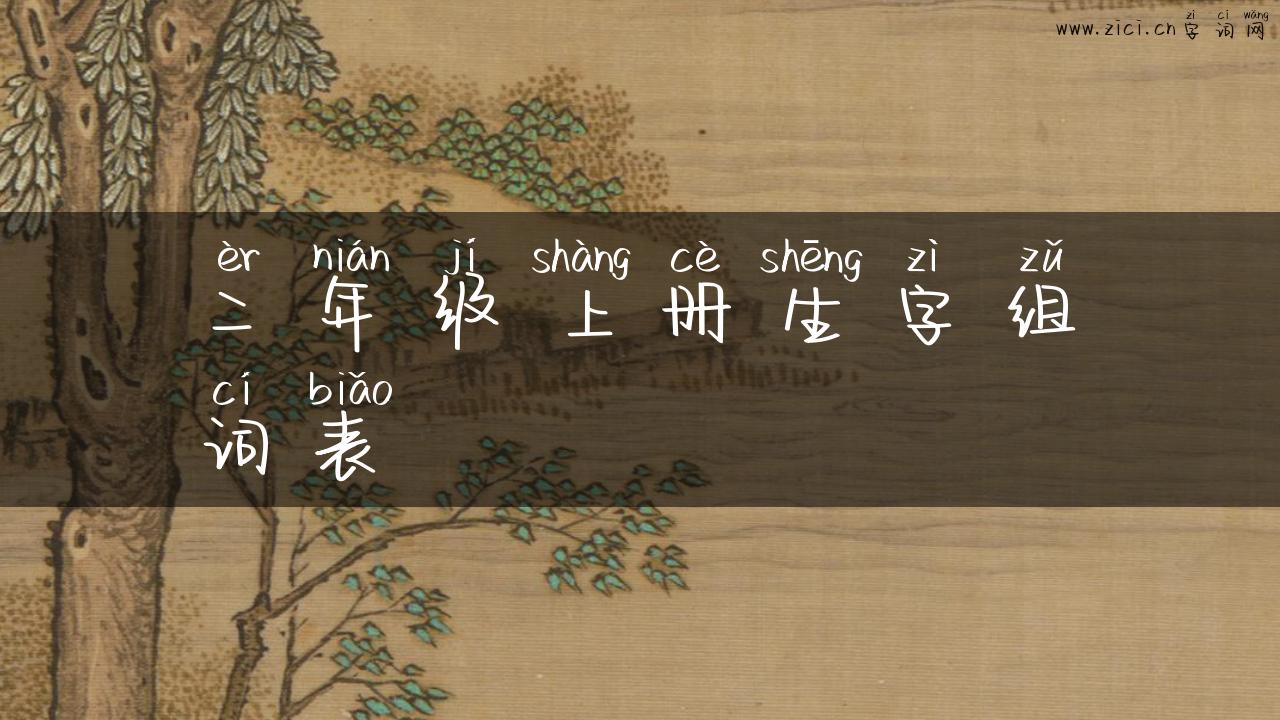 zì cí wǎng
www.zici.cn 字词网
èr nián jí shàng cè shēng zì zǔ
二年级上册生字组
cí biǎo
词表